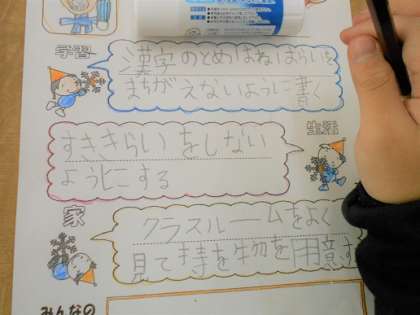 学習
漢字のとめはねはらいを
まちがえないように書く
生活
すききらいをしない
ようにする
家
クラスルームをよく
見て持を物を用意す
みんなの